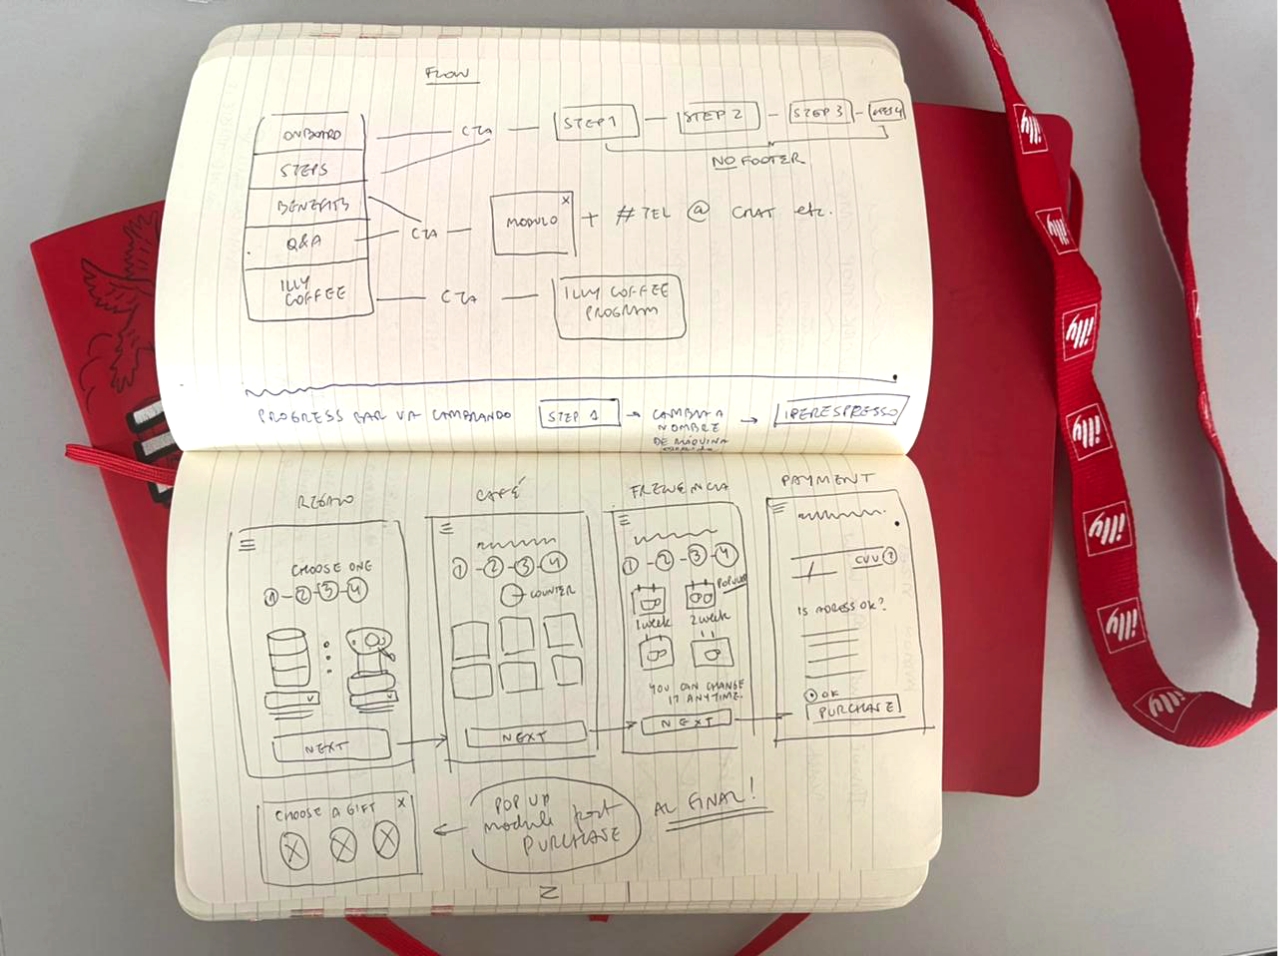 FLOW
ONBOARD
STEPS
BENEFITS
Q&A
ILLY
COFFEE
CTA
STEP 1
STEP 2
STEP 3
NO FOOTER
CTA
MODULO
x
+ # TEL @ CHAT etc.
CTA
ILLY COFFEE
PROGRAM
PROGRESS BAR VA CAMBIANDO
STEP 1
CAMBIA A
NOMBRE
DE MÁQUINA
IPERESPRESSO
REGALO
CHOOSE ONE
1-2-3-4
NEXT
CAFÉ
1-2-3-4
COUNTER
NEXT
FREQUENCIA
1-2-3-4
POPULAR
1 week
2 week
YOU CAN CHANGE
IT ANYTIME.
NEXT
PAYMENT
CVV ?
IS ADRESS OK?
OK
PURCHASE
CHOOSE A GIFT
x
POP UP
module post
PURCHASE
AL FINAL!
illy
illy
illy
illy
illy
illy
illy